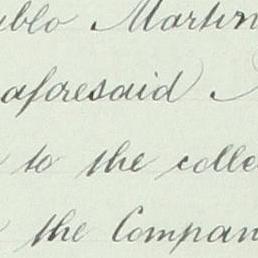 ablo Martin
aforesaid
to the colle
the Compan